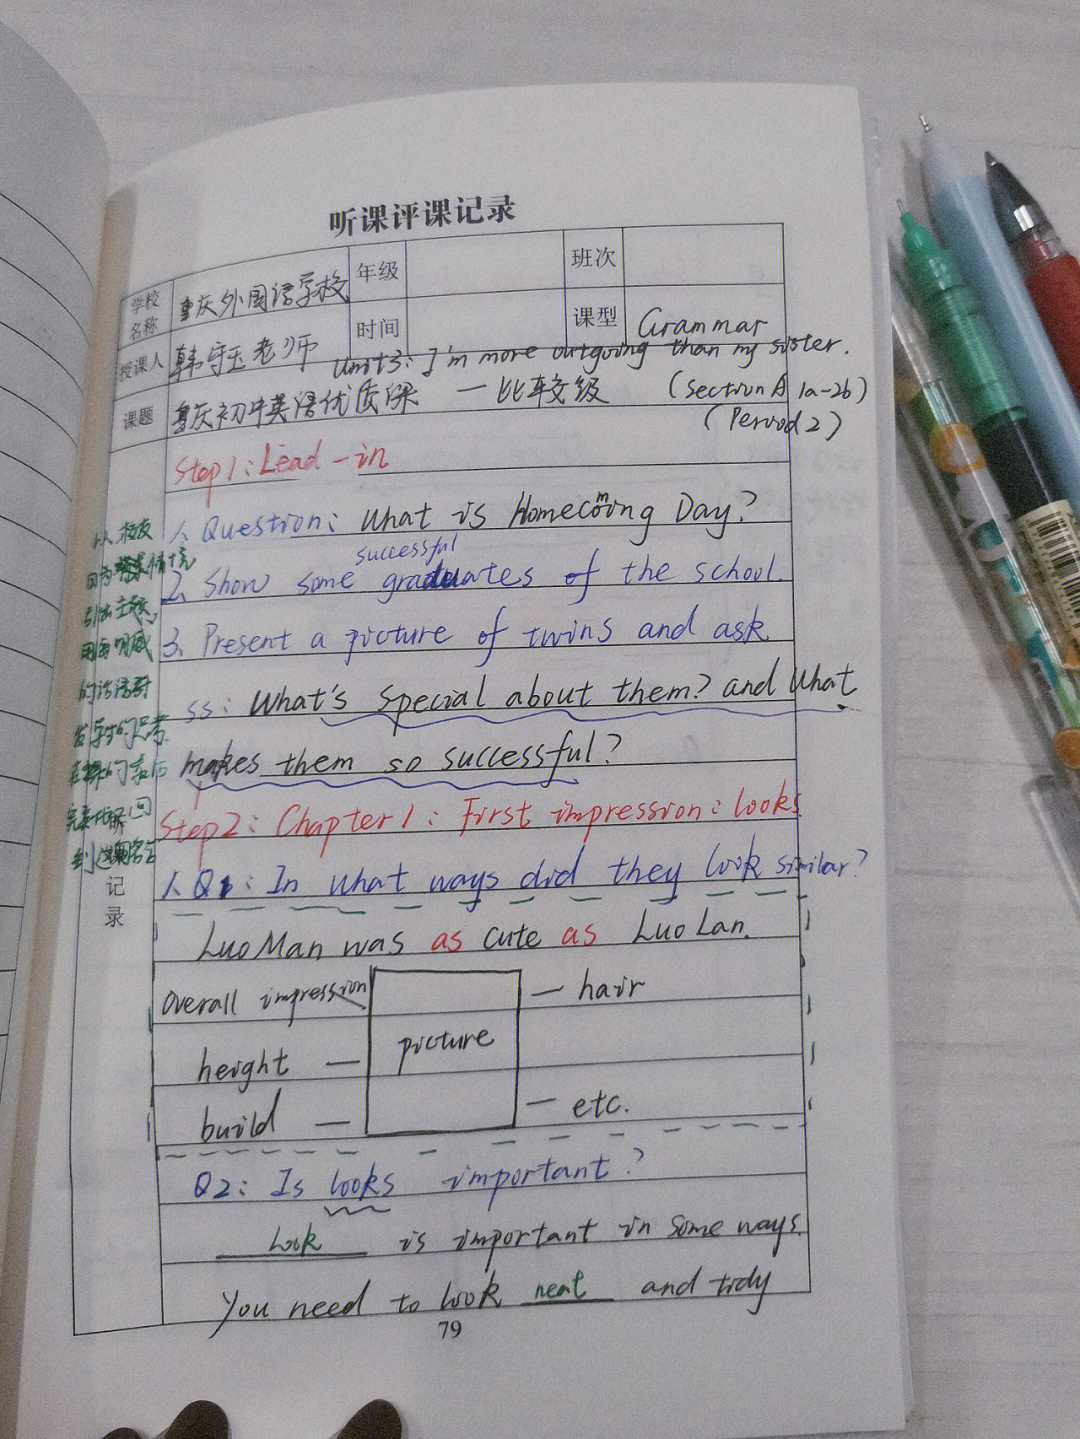 听课评课记录
学校名称 重庆外国语学校 年级 班次
授课人 韩守玉老师 时间 课型 Grammar
Unit3: I'm more outgoing than my sister.
课题 重庆初中英语优质课 — 比较级 (Section A 1a-2b)
(Period 2)
Step1: Lead-in
1. Question: What is Homecoming Day?
successful
2. Show some graduates of the school.
3. Present a picture of twins and ask
ss: What's special about them? and What
makes them so successful?
Step2: Chapter1: First impression: looks
1. Q1: In what ways did they look similar?
Luo Man was as cute as Luo Lan.
Overall impression — hair
picture
height —
build — — etc.
Q2: Is looks important?
Look is important in some ways.
You need to look neat and tidy
以校友
引出主题,
的话语
记录
79